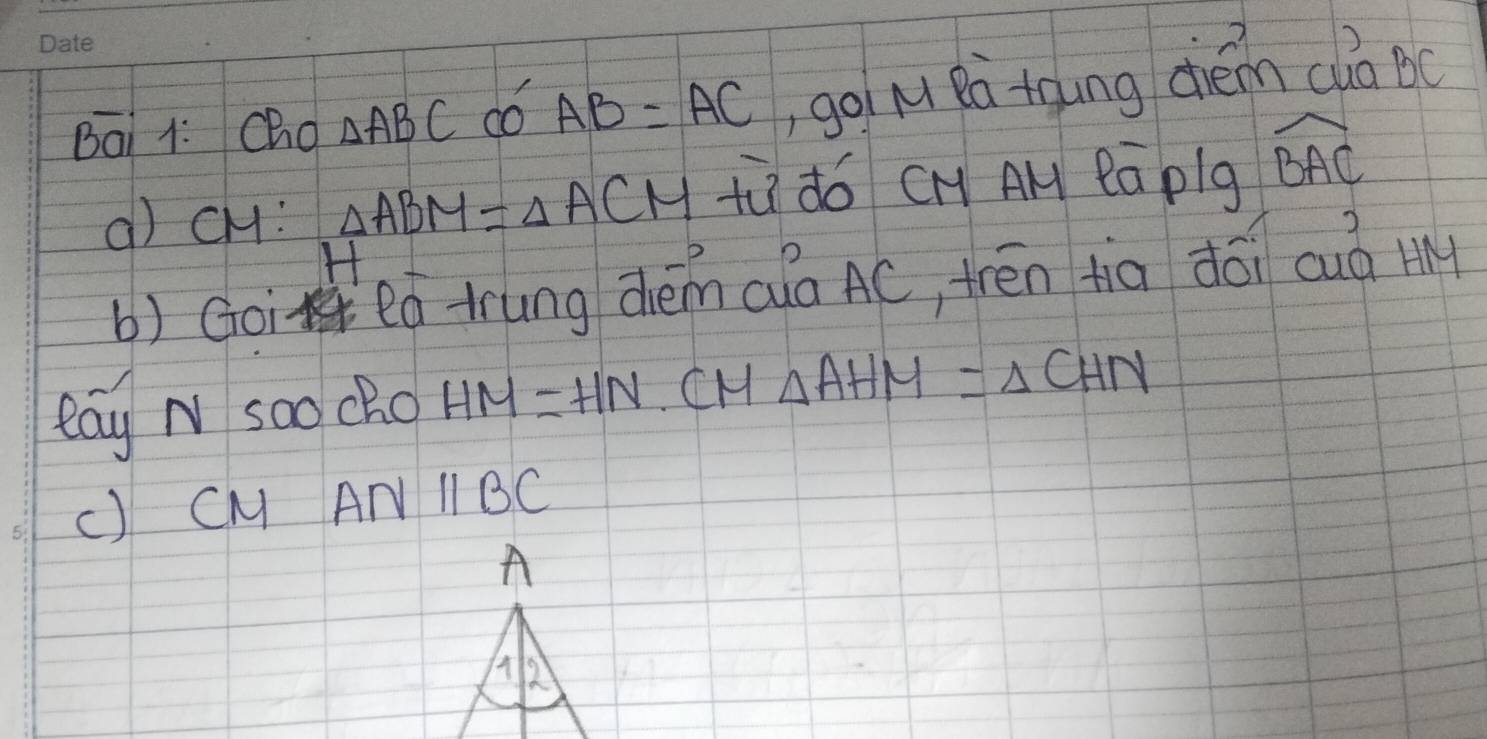 Date
Bài 1: Cho ΔABC có AB = AC, gọi M là trung điểm của BC
a) CM: ΔABM = ΔACM từ đó CM AM là p/g \widehat{BAC}
H
b) Gọi là trung điểm của AC, trên tia đối của HM
lấy N sao cho HM = HN. CM ΔAHM = ΔCHN
5
c) CM AN // BC
A
1 2